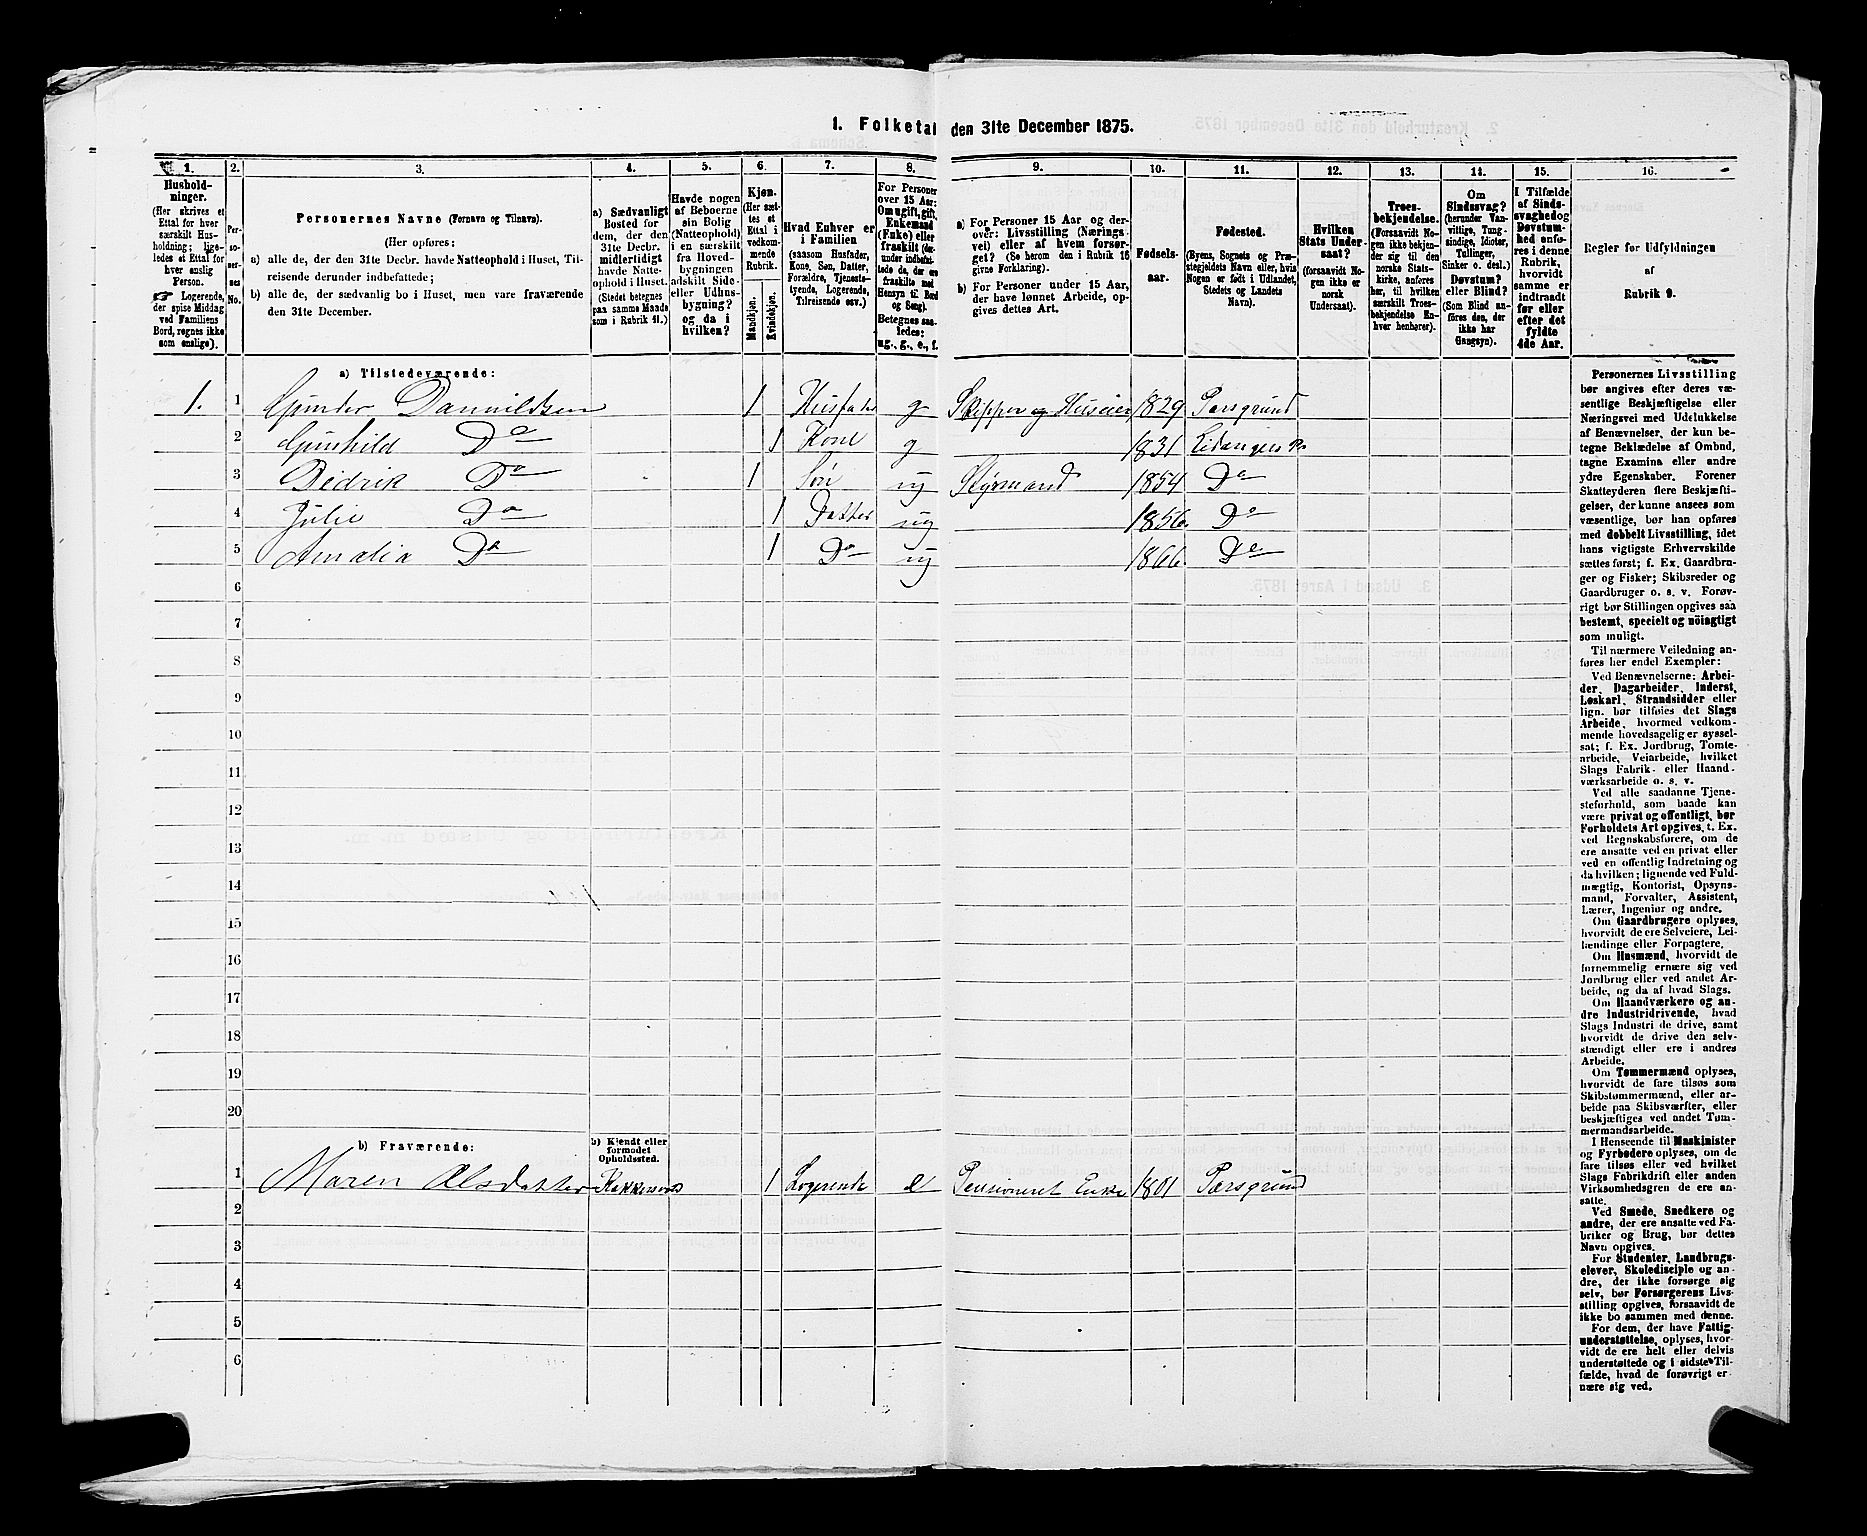 1. Folketal den 31te December 1875.
1.
Hushold-
ninger.
(Her skrives et
Ettal for hver
særskilt Hus-
holdning; lige-
ledes et Ettal for
hver enslig
Person.
Logerende,
der spise Middag
ved Familiens
Bord, regnes ikke
som enslige).
2.
Personernes No.
3.
Personernes Navne (Fornavn og Tilnavn).
(Her opføres:
a) alle de, der den 31te Decbr. havde Natteophold i Huset, Til-
reisende derunder indbefattede;
b) alle de, der sædvanlig bo i Huset, men vare fraværende
den 31te December.
4.
a) Sædvanligt
Bosted for
dem, der den
31te Decbr.
midlertidigt
havde Natte-
ophold i Huset.
(Stedet betegnes
paa samme Maade
som i Rubrik 11.)
5.
Havde nogen
af Beboerne
sin Bolig
(Natteophold)
i en særskilt
fra Hoved-
bygningen
adskilt Side-
eller Udhus-
bygning?
og da i
hvilken?
6.
Kjøn.
(Her sæt-
tes et
Ettal i
vedkom-
mende
Rubrik.
Mandkjøn.
Kvindekjøn.
7.
Hvad Enhver er
i Familien
(saasom Husfader,
Kone, Søn, Datter,
Forældre, Tjeneste-
tyende, Logerende,
Tilreisende osv.)
8.
For Personer
over 15 Aar:
Om ugift, gift,
Enkemand
(Enke) eller
fraskilt (der-
under indbefat-
tede de, der ere
fraskilte med
Hensyn til Bord
og Seng).
Betegnes saa-
ledes:
ug., g., e., f.
9.
a) For Personer 15 Aar og der-
over: Livsstilling (Nærings-
vei) eller af hvem forsør-
get? (Se herom den i Rubrik 16
givne Forklaring).
b) For Personer under 15 Aar,
der have lønnet Arbeide, op-
gives dettes Art.
10.
Fødsels-
aar.
11.
Fødested.
(Byens, Sognets og Præ-
stegjeldets Navn eller, hvis
Nogen er født i Udlandet,
Stedets og Landets
Navn).
12.
Hvilken
Stats Under-
saat?
(forsaavidt No-
gen ikke er
norsk
Undersaat).
13.
Troes-
bekjendelse.
(Forsaavidt No-
gen ikke bekjen-
der sig til den
norske Stats-
kirke, anføres
her, til hvilken
særskilt Troes-
bekjendelse En-
hver henhører).
14.
Om
Sindssvag?
(herunder Van-
vittige, Tung-
sindige, Idioter,
Tullinger,
Sinker o. desl.)
Døvstum?
eller Blind?
(Som Blind an-
føres den, der
ikke har
Gangsyn).
15.
I Tilfælde
af Sinds-
svaghed og
Døvstum-
hed anfø-
res i denne
Rubrik,
hvorvidt
samme er
indtraadt
før eller
efter det
fyldte
4de Aar.
16.
Regler for Udfyldningen
af
Rubrik 9.
a) Tilstedeværende:
1. 1 Gunder Dannildsen 1 Husfader g Skipper og Huseier 1829 Porsgrund
2 Gunhild Do 1 Kone g 1831 Eidanger
3 Didrik Do 1 Søn ug Styrmand 1854 Do
4 Julie Do 1 Datter ug 1856. Do
5 Amalia Do 1 Do ug 1866. Do
6
7
8
9
10
11
12
13
14
15
16
17
18
19
20
b) Fraværende:
b) Kjendt eller
formodet
Opholdssted.
1 Maren Olsdatter 1 Logerende e Pensioneret Enke 1801 Porsgrund
2
3
4
5
6
Personernes Livsstilling
bør angives efter deres væ-
sentlige Beskjæftigelse eller
Næringsvei med Udelukkelse
af Benævnelser, der kun be-
tegne Beklædelse af Ombud,
tagne Examina eller andre
ydre Egenskaber. Forener
Skatteyderen flere Beskjæfti-
gelser, der kunne ansees som
væsentlige, bør han opføres
med dobbelt Livsstilling, idet
hans vigtigste Erhvervskilde
sættes først; f. Ex. Gaardbru-
ger og Fisker; Skibsreder og
Gaardbruger o. s. v. Forøv-
rigt bør Stillingen opgives saa
bestemt, specielt og nöiagtigt
som muligt.
Til nærmere Veiledning an-
føres her endel Exempler:
Ved Benævnelserne: Arbei-
der, Dagarbeider, Inderst,
Løskarl, Strandsidder eller
lign. bør tilføies det Slags
Arbeide, hvormed vedkom-
mende hovedsagelig er syssel-
sat; f. Ex. Jordbrug, Tomte-
arbeide, Veiarbeide, hvilket
Slags Fabrik- eller Haand-
værksarbeide o. s. v.
Ved alle saadanne Tjene-
steforhold, som baade kan
være privat og offentligt, bør
Forholdets Art opgives, t. Ex.
ved Regnskabsførere, om de
ere ansatte ved en privat eller
ved en offentlig Indretning og
da hvilken; lignende ved Fuld-
mægtig, Kontorist, Opsyns-
mand, Forvalter, Assistent,
Lærer, Ingeniør og andre.
Om Gaardbrugere oplyses,
hvorvidt de ere Selveiere, Lei-
lændinge eller Forpagtere.
Om Husmænd, hvorvidt de
fornemmelig ernære sig ved
Jordbrug eller ved andet Ar-
beide, og da af hvad Slags.
Om Haandværkere og an-
dre Industridrivende, hvad
Slags Industri de drive, samt
hvorvidt de drive den selv-
stændigt eller ere i andres
Arbeide.
Om Tømmermænd oplyses,
hvorvidt de fare tilsøs som
Skibstømmermænd, eller ar-
beide paa Skibsværfter, eller
beskjæftiges ved andet Tøm-
mermandsarbeide.
I Henseende til Maskinister
og Fyrbødere oplyses, om de
fare tilsøs eller ved hvilket
Slags Fabrikdrift eller anden
Virksomhedsgren de ere an-
satte.
Ved Smede, Snedkere og
andre, der ere ansatte ved Fa-
briker og Brug, bør dettes
Navn opgives.
For Studenter, Landbrugs-
elever, Skoledisciple og an-
dre, der ikke forsørge sig
selv, bør Forsørgerens Livs-
stilling opgives, forsaavidt de
ikke bo sammen med denne.
For dem, der have Fattig-
understøttelse, oplyses, hvor-
vidt de ere helt eller delvis
understøttede og i sidste Til-
fælde, hvad de forøvrigt er-
nære sig ved.